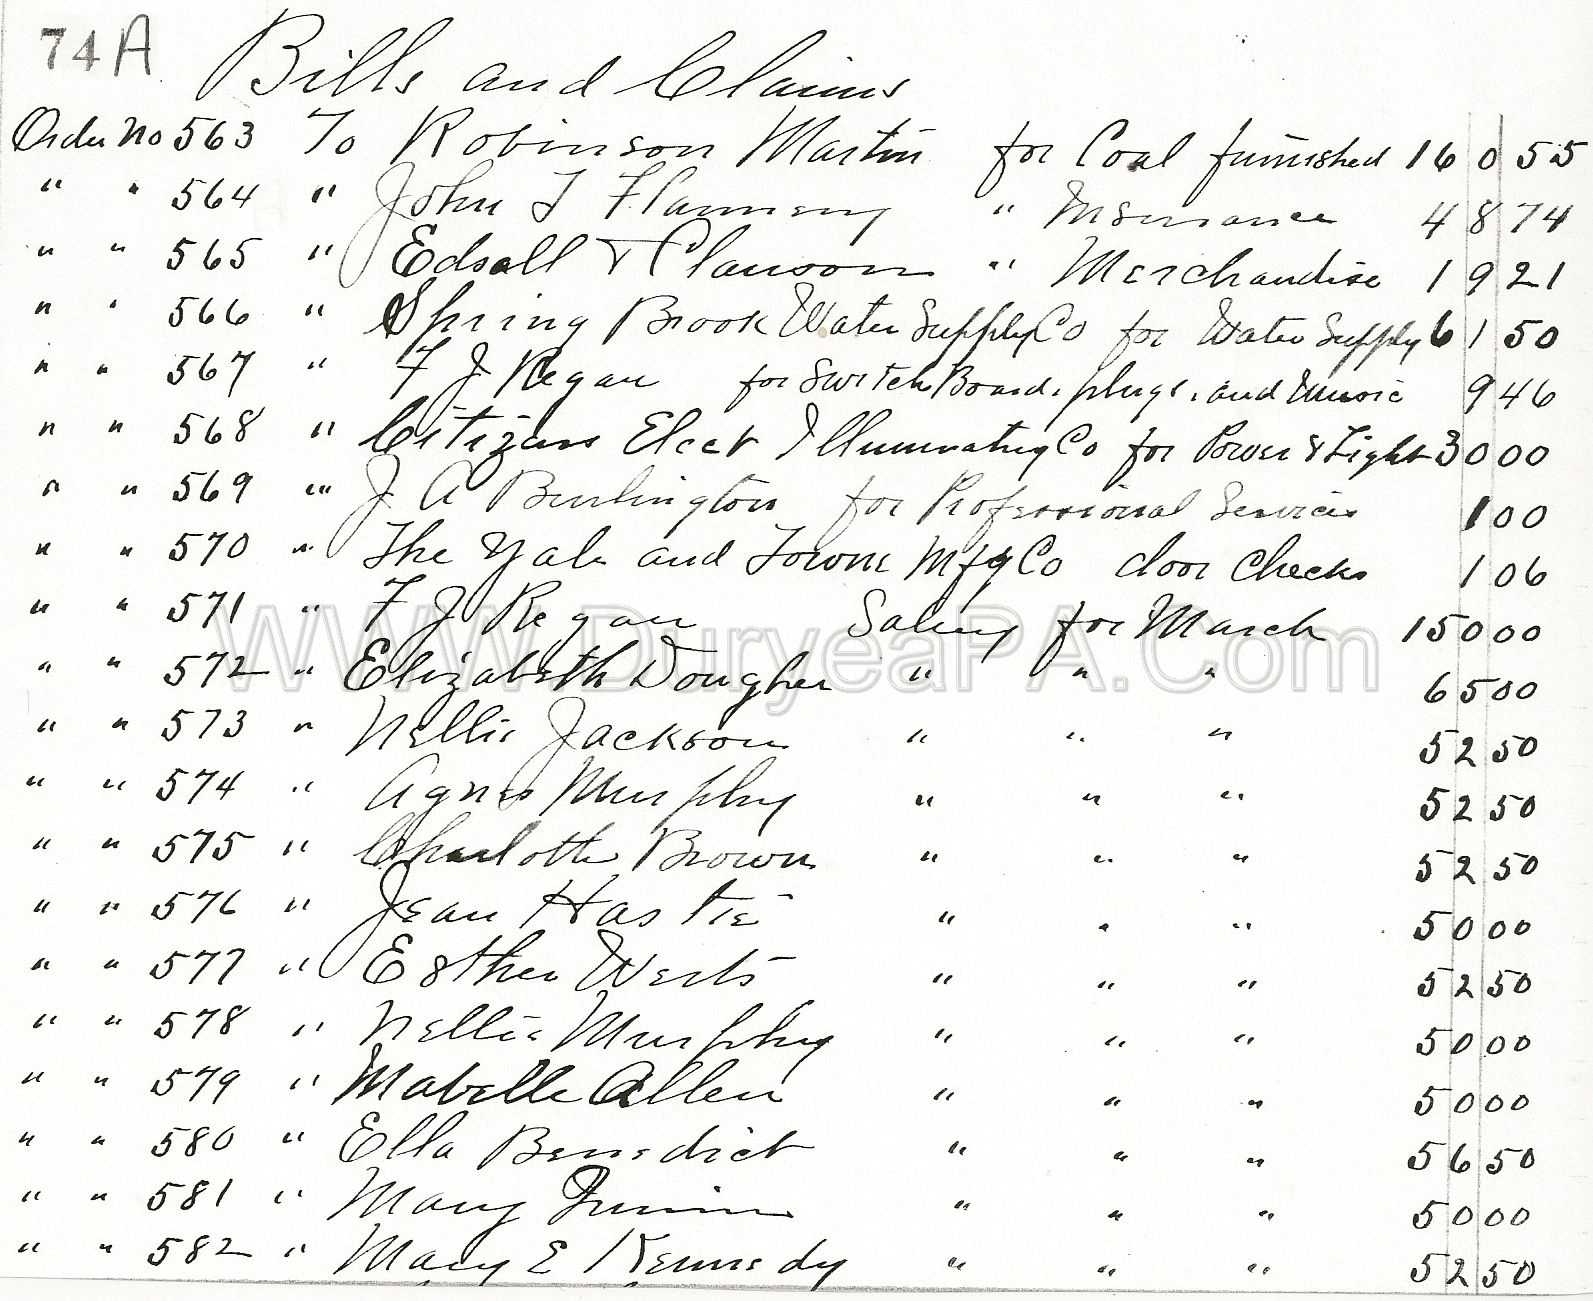 74A Bills and Claims
Order No 563 To Robinson Martin for Coal furnished 160 55
" " 564 " John T Flannery " Insurance 48 74
" " 565 " Edsall & Clauson " Merchandise 19 21
" " 566 " Spring Brook Water Supply Co for Water Supply 61 50
" " 567 " F J Regan for Switch Board, plugs, and Music 9 46
" " 568 " Citizens Elect Illuminating Co for Power & Light 30 00
" " 569 " J A Burlington for Professional Services 1 00
" " 570 " The Yale and Towne Mfg Co door Checks 1 06
" " 571 " F J Regan Salary for March 150 00
" " 572 " Elizabeth Dougher " " " 65 00
" " 573 " Nellie Jackson " " " 52 50
" " 574 " Agnes Murphy " " " 52 50
" " 575 " Charlotte Brown " " " 52 50
" " 576 " Jean Hastie " " " 50 00
" " 577 " Esther Werts " " " 52 50
" " 578 " Nellie Murphy " " " 50 00
" " 579 " Mabelle Allen " " " 50 00
" " 580 " Ella Benedict " " " 56 50
" " 581 " Mary " " " 50 00
" " 582 " Mary E Kennedy " " " 52 50
WWW.DuryeaPA.Com